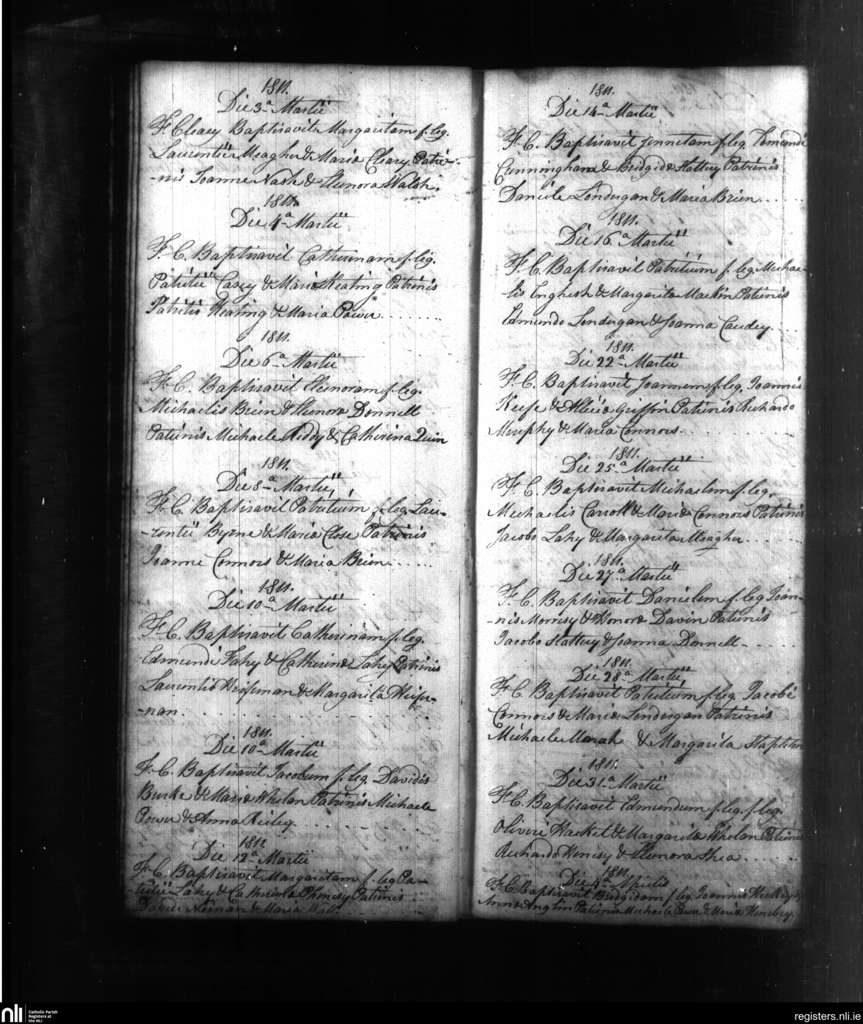 1811.
Die 3a Martii
F Cleary Baptisavit Margaritam f. leg.
Laurentii Meagher & Maria Cleary Patri-
-nis Joanne Nash & Elenora Walsh.
1811.
Die 4a Martii
F. C. Baptisavit Catherinam f. leg.
Patritii Casey & Maria Keating Patrinis
Patritio Keating & Maria Power
1811.
Die 6a Martii
F. C. Baptisavit Elenoram f. leg.
Michaelis Brien & Elenora Donnell
Patrinis Michaele Reddy & Catherina Quin
1811.
Die 8a Martii
F. C. Baptisavit Patritium f. leg. Lau-
-rentii Byrne & Maria Close Patrinis
Joanne Connors & Maria Brien
1811.
Die 10a Martii
F. C. Baptisavit Catherinam f. leg.
Edmundi Fahy & Catherina Lahy Patrinis
Laurentio & Margarita
-nan
1811.
Die 10a Martii
F. C. Baptisavit Jacobum f. leg. Davidis
Burke & Maria Whelan Patrinis Michaele
Power & Anna
1811
Die 12a Martii
F. C. Baptisavit Margaritam f. leg Pa-
-tritii Lahy & Catherina Patrinis
Noonan & Maria Wall
1811.
Die 14a Martii
F. C. Baptisavit f. leg. Edmundi
Cunningham & Bridgida Slattery Patrinis
Daniele Londergan & Maria Brien
1811.
Die 16a Martii
F. C. Baptisavit Patritium f. leg. Michae-
-lis English & Margarita Mackin Patrinis
Edmundo Londergan & Joanna
1811.
Die 22a Martii
F. C. Baptisavit Joannem f. leg. Joannis
Keefe & Alicia Griffin Patrinis Richardo
Murphy & Maria Connors
1811.
Die 25a Martii
F. C. Baptisavit Michaelem f. leg.
Michaelis Carroll & Maria Connors Patrinis
Jacobo Lahy & Margarita Meagher
1811.
Die 27a Martii
F. C. Baptisavit Danielem f. leg Joan-
-nis Morrisy & Honora Davin Patrinis
Jacobo Slattery & Joanna Donnell
1811.
Die 28a Martii
F. C. Baptisavit Patritium f. leg. Jacobi
Connors & Maria Londergan Patrinis
Michaele & Margarita Stapleton
1811.
Die 31a Martii
F. C. Baptisavit Edmundum f. leg. f. leg.
Oliveri Hacket & Margarita Whelan Patrinis
Richardo & Elenora Shea
1811.
Die Aprilis
F. C. Baptisavit Bridgidam f. leg. Joannis Hickey &
Anna Anglin Patrinis Michaele Power & Maria
nli
Catholic Parish
Registers at
the NLI
registers.nli.ie